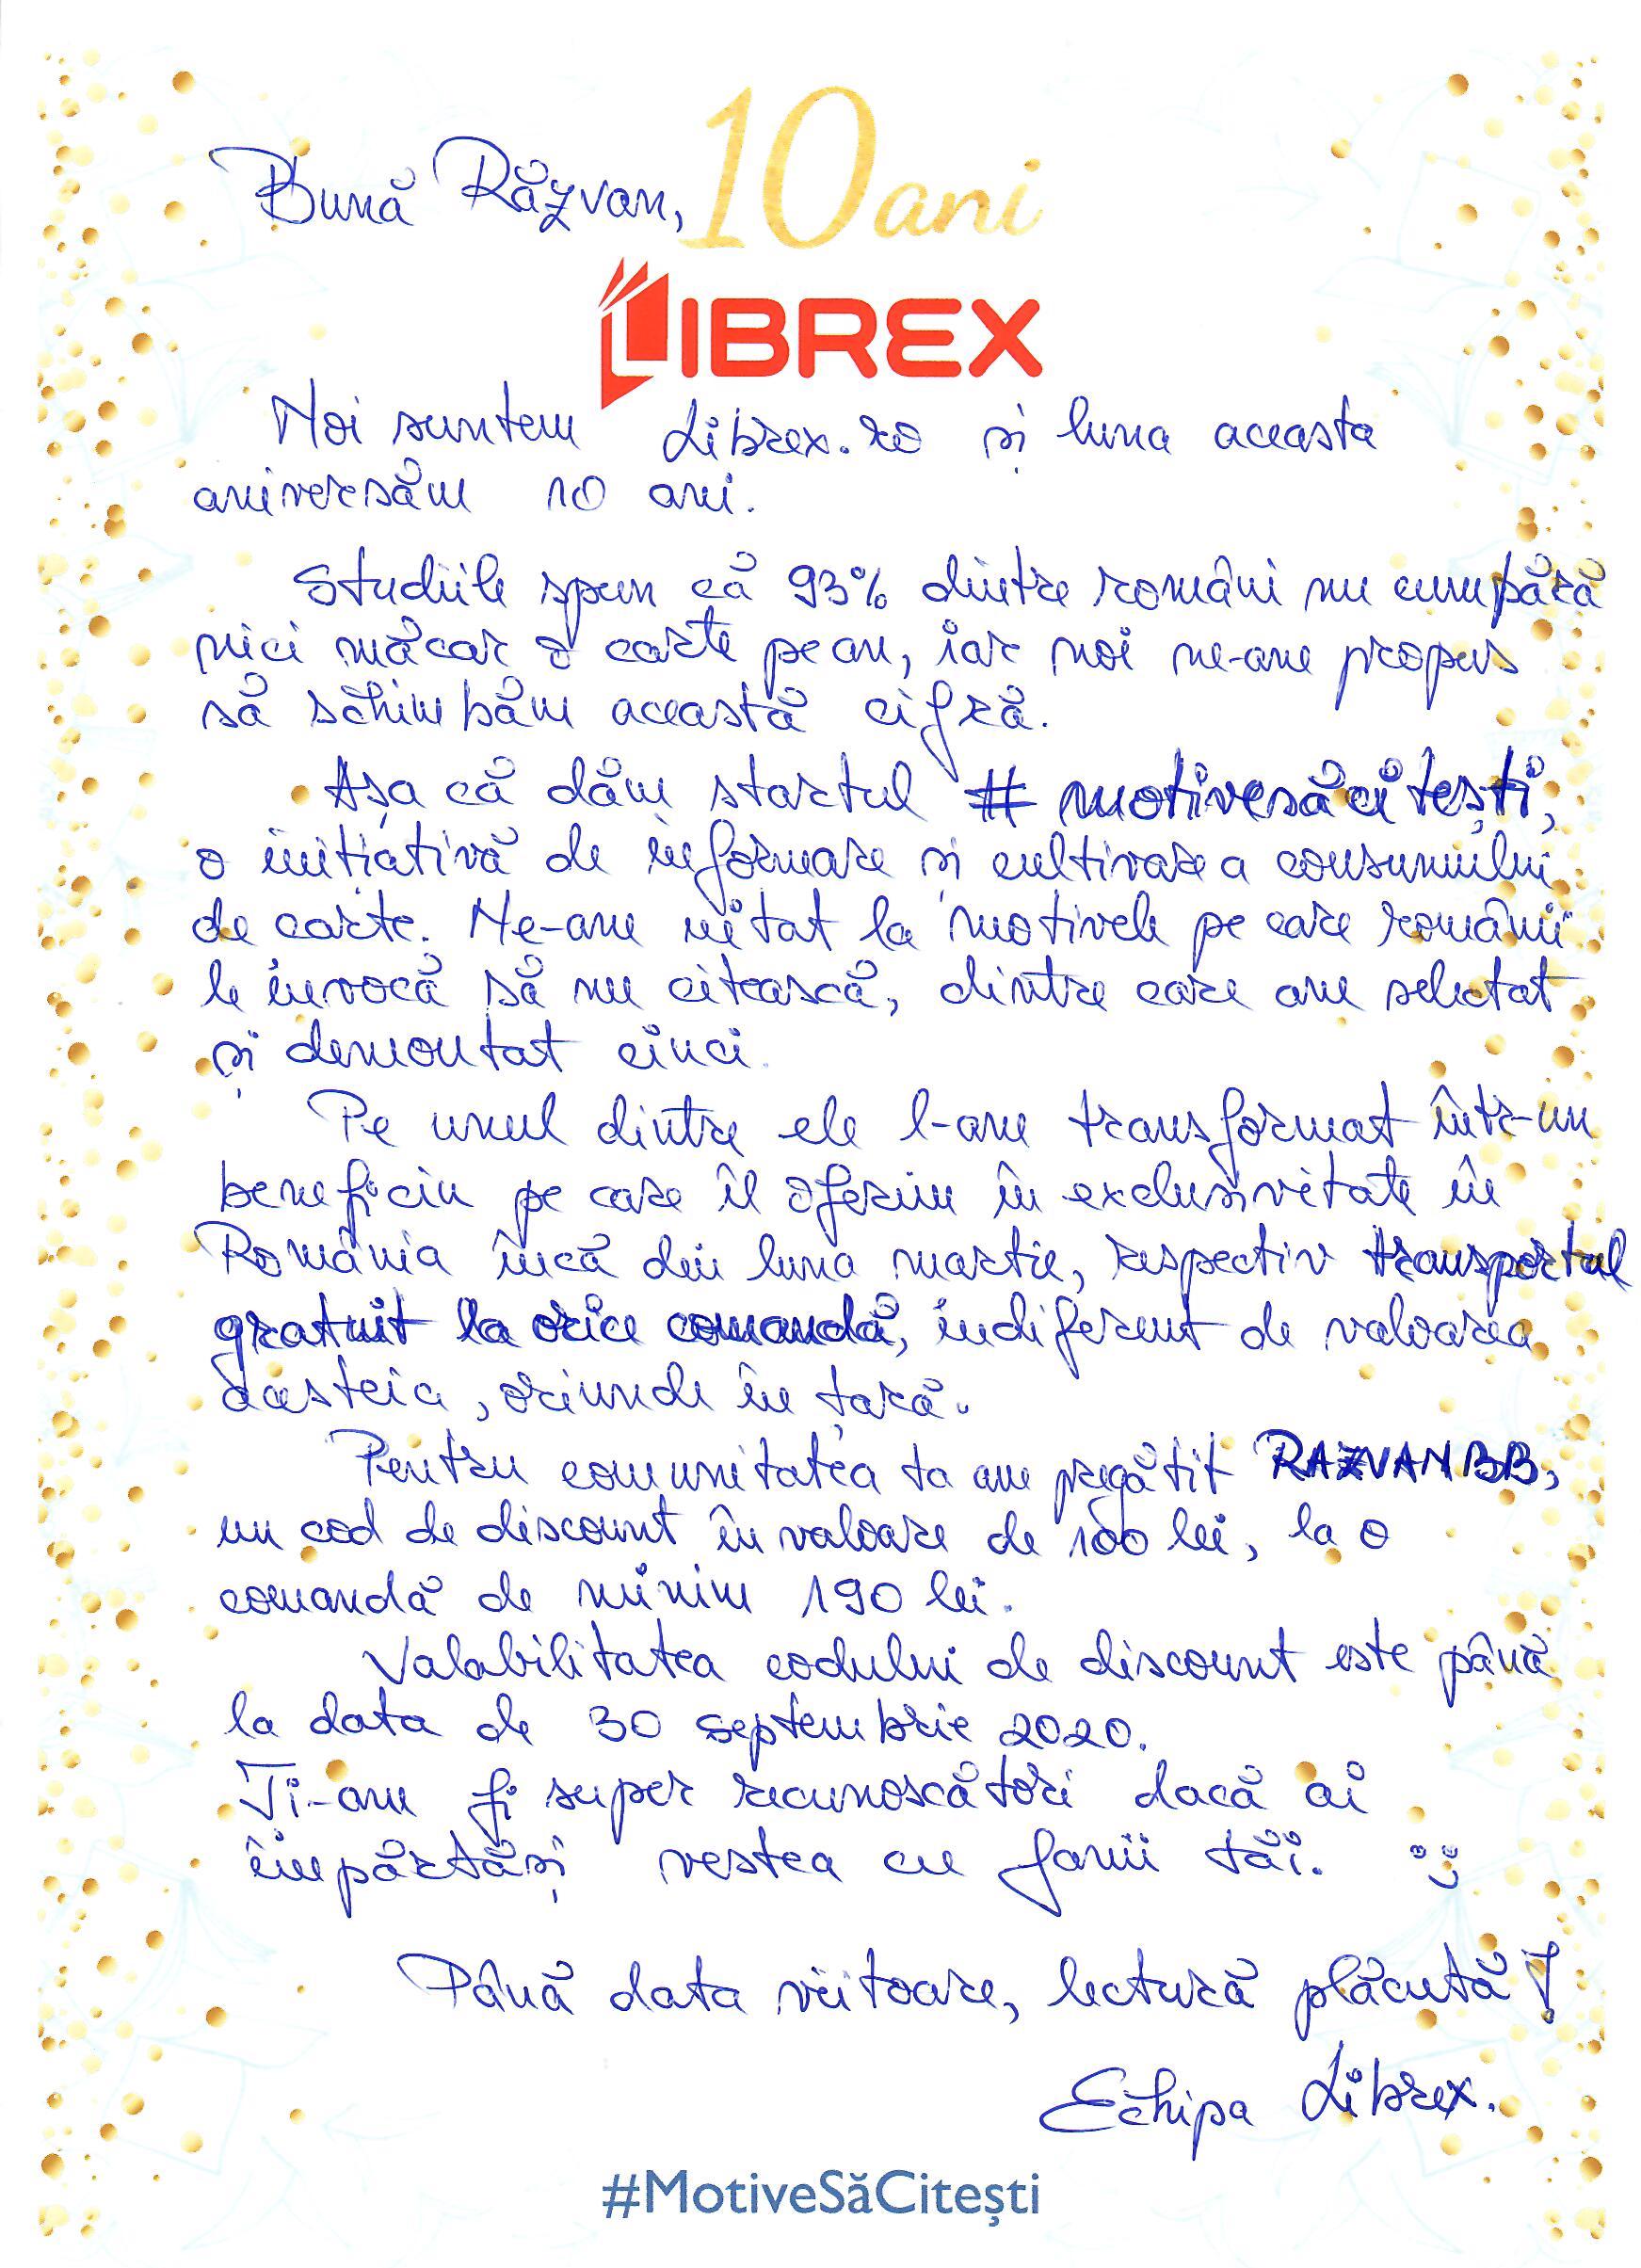 10 ani
Bună Răzvan,
LIBREX
Noi suntem Librex.ro și luna aceasta
aniversăm 10 ani.
Studiile spun că 93% dintre români nu cumpără
nici măcar o carte pe an, iar noi ne-am propus
să schimbăm această cifră.
Așa că dăm startul #motivesăcitești,
o inițiativă de informare și cultivare a consumului
de carte. Ne-am uitat la motivele pe care românii
le invocă să nu citească, dintre care am selectat
și demontat cinci.
Pe unul dintre ele l-am transformat într-un
beneficiu pe care îl oferim în exclusivitate în
România încă din luna martie, respectiv transportul
gratuit la orice comandă, indiferent de valoarea
acesteia, oriunde în țară.
Pentru comunitatea ta am pregătit RAZVANBB,
un cod de discount în valoare de 100 lei, la o
comandă de minim 190 lei.
Valabilitatea codului de discount este până
la data de 30 septembrie 2020.
Ți-am fi super recunoscători dacă ai
împărtăși vestea cu fanii tăi. :)
Până data viitoare, lectură plăcută!
Echipa Librex.
#MotiveSăCitești